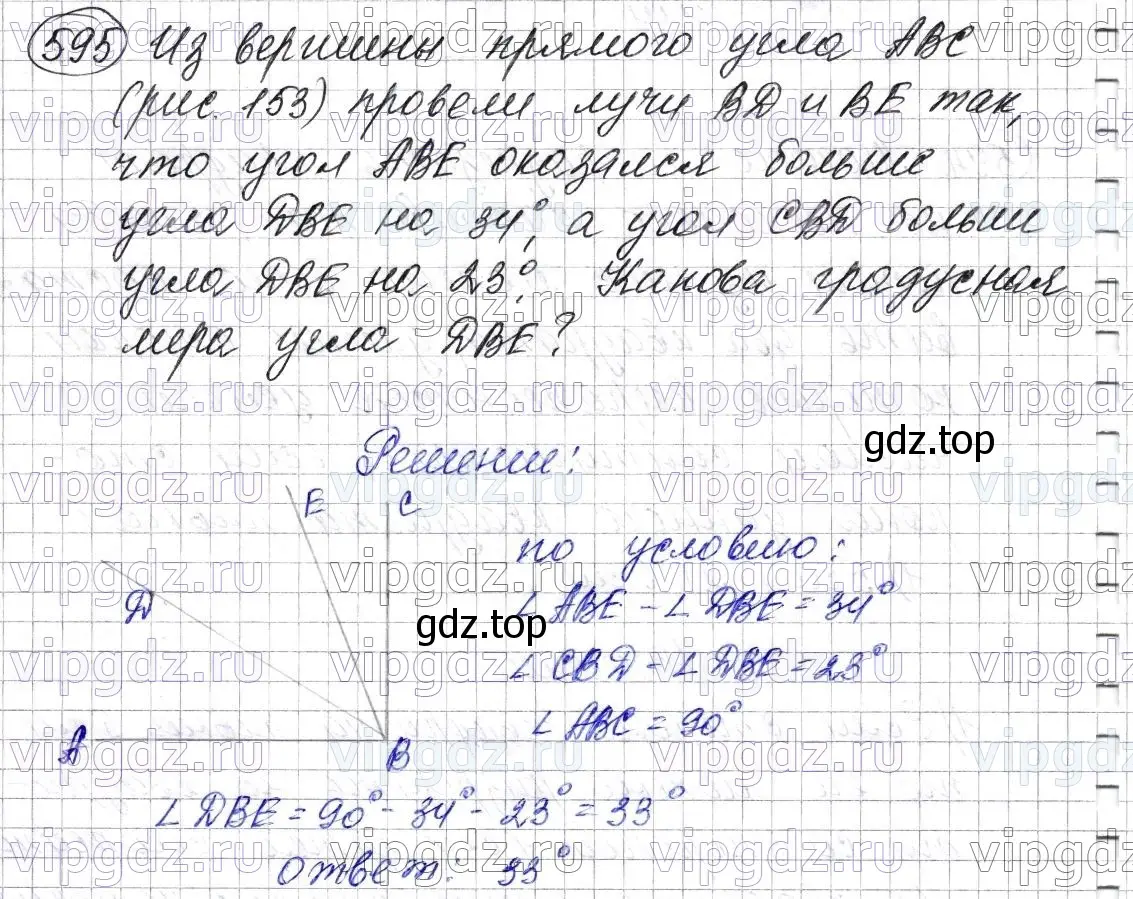 595 Из вершины прямого угла ABC
(рис. 153) провели лучи BD и BE так,
что угол ABE оказался больше
угла DBE на 34°, а угол CBD больши
угла DBE на 23°. Какова градусная
мера угла DBE?
gdz.top
Решение:
E C
по условию:
D
∠ABE - ∠DBE = 34°
gdz.top
∠CBD - ∠DBE = 23°
∠ABC = 90°
A B
∠DBE = 90° - 34° - 23° = 33°
Ответ: 33°
vipgdz.ru